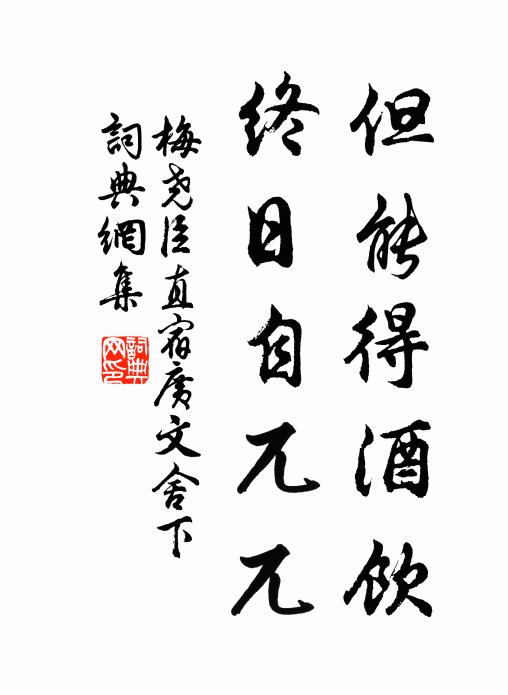 但能得酒飲
終日自兀兀
梅尧臣直宿廣文舍下
詞典網集
詞典網印